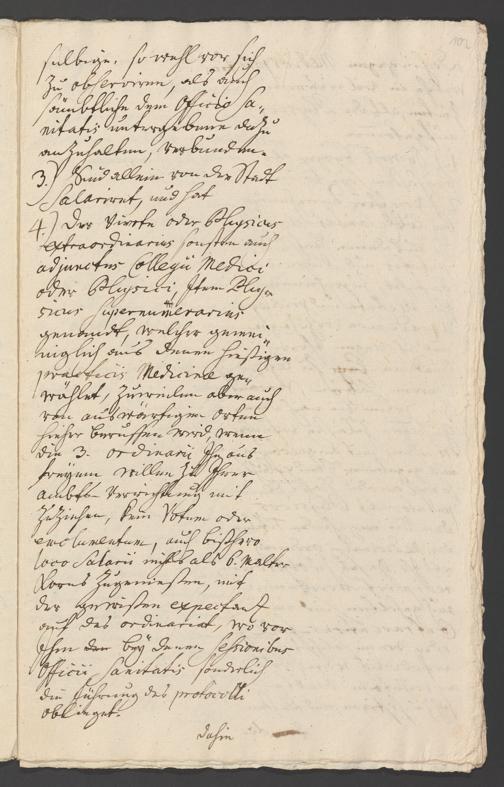 selbige, so wohl vor sich
zu observiren, als auch
sämbtliche dem Officio Sa-
nitatis untergebene dazu
anzuhalten, verbunden.
3.) Sind allein von der Stadt
Salariret, und hat
4.) Der Vierte oder Physicus
extraordinarius sonsten auch
adjunctus Collegii Medici
oder Physici, item Phy-
sicus supernumerarius
genandt, welcher gemei-
niglich aus denen hiesigen
practicis Medicinae ge-
wählet, zuweilen aber auch
von auswärtigen orten
hieher beruffen wird, wenn
die 3. ordinarii Ihn aus
freyem willen zu Ihrer
ambts-Verrichtung mit
zuziehen, kein Votum oder
emolumentum, auch bißhero
loco Salarii nichts als 6. Malter
Korns zugeniessen, mit
der gewissen expectanz
auf das ordinariat, wo vor
Ihm bey denen Sessionibus
Officii Sanitatis sonderlich
die führung des protocolli
oblieget.
dahin